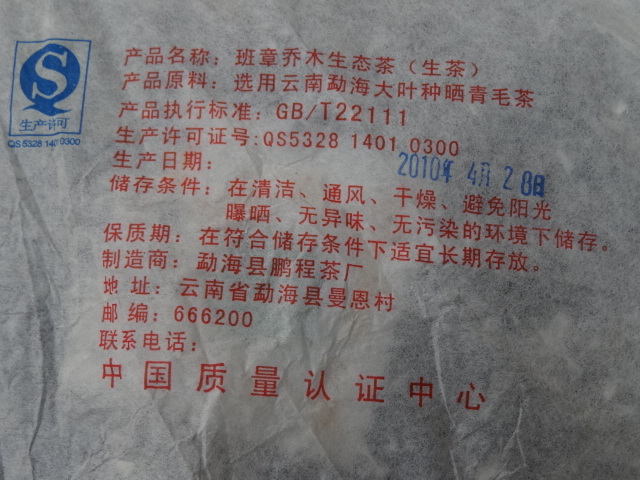 生产许可
QS5328 1401 0300
产品名称：班章乔木生态茶（生茶）
产品原料：选用云南勐海大叶种晒青毛茶
产品执行标准：GB/T22111
生产许可证号:QS5328 1401 0300
生产日期：2010年 4月 28日
储存条件：在清洁、通风、干燥、避免阳光
曝晒、无异味、无污染的环境下储存。
保质期：在符合储存条件下适宜长期存放。
制造商：勐海县鹏程茶厂
地 址：云南省勐海县曼恩村
邮 编：666200
联系电话：
中国质量认证中心